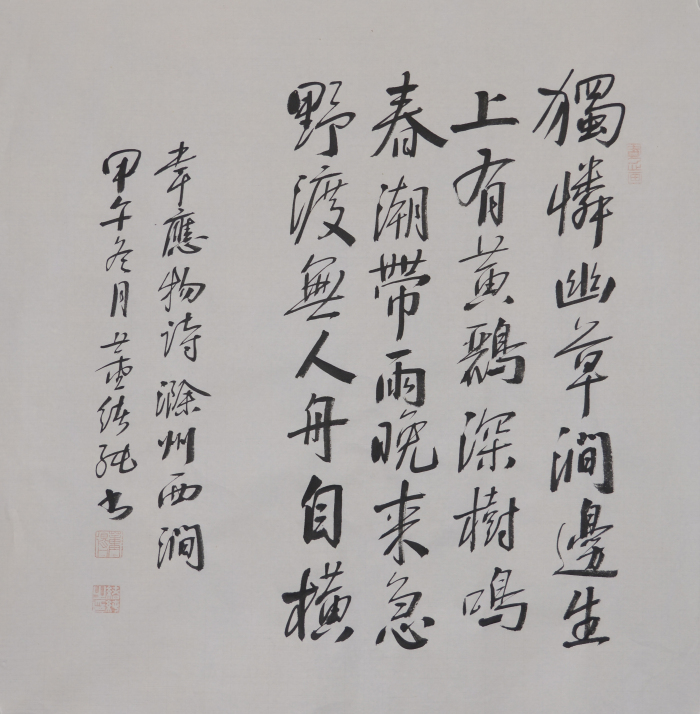 獨憐幽草澗邊生
上有黃鸝深樹鳴
春潮帶雨晚来急
野渡無人舟自橫
韋應物詩滁州西澗
甲午冬月书